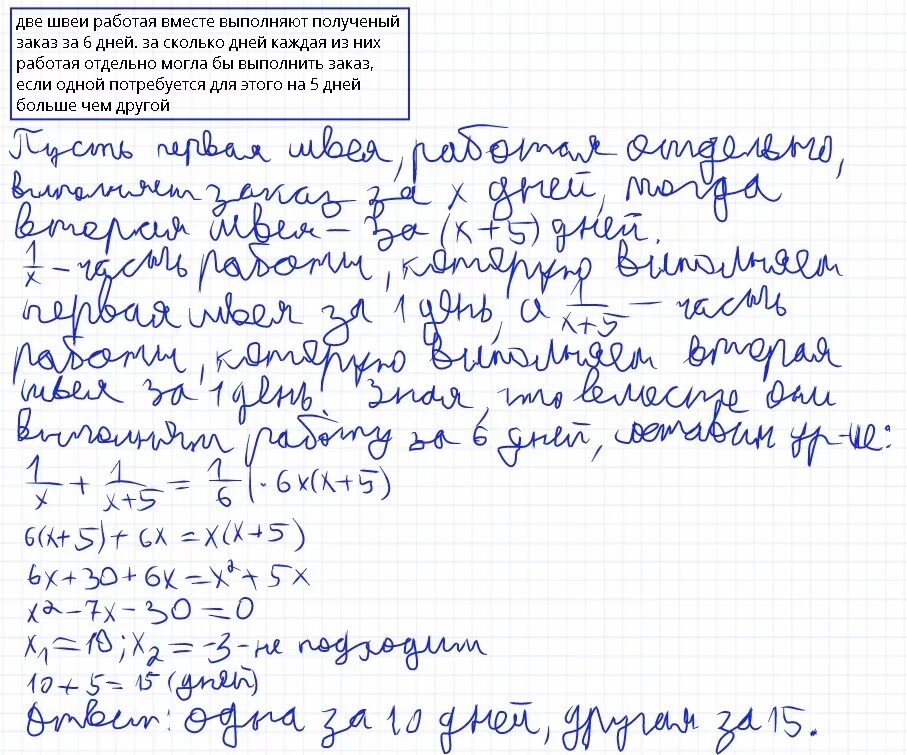 две швеи работая вместе выполняют полученый
заказ за 6 дней. за сколько дней каждая из них
работая отдельно могла бы выполнить заказ,
если одной потребуется для этого на 5 дней
больше чем другой
Пусть первая швея, работая отдельно,
выполняет заказ за x дней, тогда
вторая швея – за (x+5) дней.
1/x – часть работы, которую выполняет
первая швея за 1 день, а 1/(x+5) – часть
работы, которую выполняет вторая
швея за 1 день. Зная, что вместе они
выполнят работу за 6 дней, составим ур-ие:
1/x + 1/(x+5) = 1/6 |· 6x(x+5)
6(x+5)+6x=x(x+5)
6x+30+6x=x²+5x
x²-7x-30=0
x₁=10; x₂=-3 - не подходит
10+5=15 (дней)
Ответ: одна за 10 дней, другая за 15.